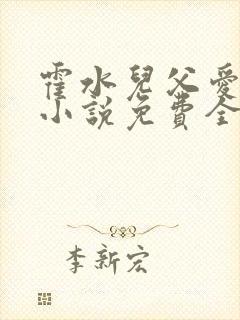 霍水兒父愛
小說免費全
李新宏